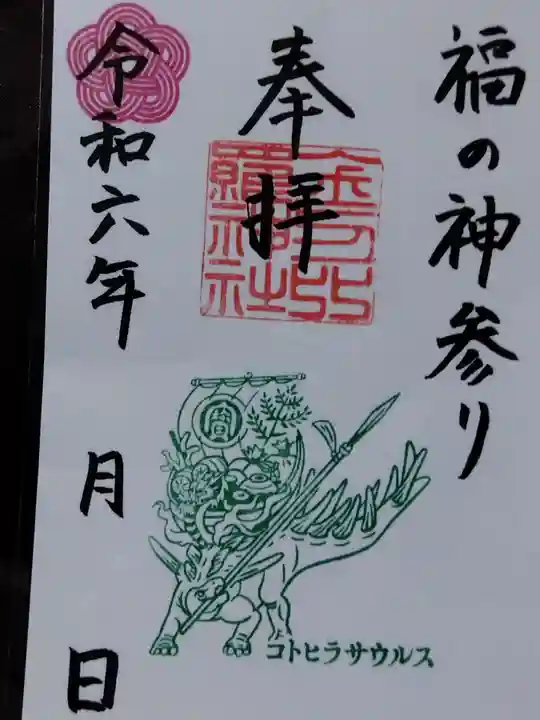 福の神参り
奉拝
金刀比
羅神社
令和六年 月 日
間
コトヒラサウルス